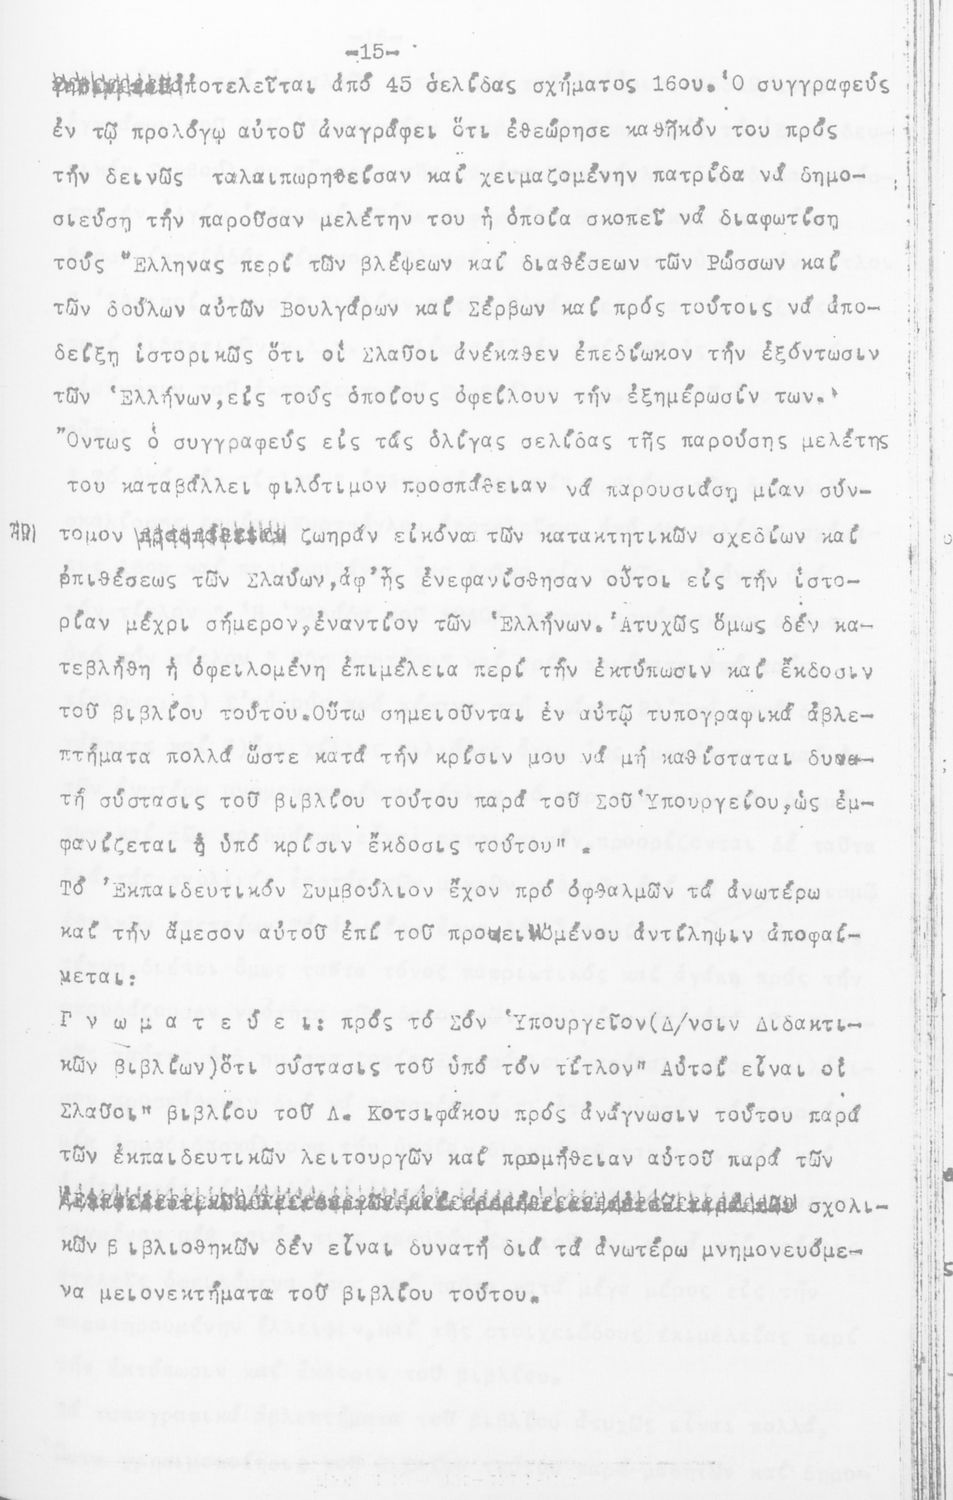 -15-
ἀποτελεῖται ἀπό 45 σελίδας σχήματος 16ου. Ὁ συγγραφεύς
ἐν τῷ προλόγῳ αὐτοῦ ἀναγράφει ὅτι ἐθεώρησε καθῆκόν του πρός
τήν δεινῶς ταλαιπωρηθεῖσαν καί χειμαζομένην πατρίδα νά δημο-
σιεύσῃ τήν παροῦσαν μελέτην του ἡ ὁποία σκοπεῖ νά διαφωτίσῃ
τούς Ἕλληνας περί τῶν βλέψεων καί διαθέσεων τῶν Ρώσσων καί
τῶν δούλων αὐτῶν Βουλγάρων καί Σέρβων καί πρός τούτοις νά ἀπο-
δείξῃ ἱστορικῶς ὅτι οἱ Σλαῦοι ἀνέκαθεν ἐπεδίωκον τήν ἐξόντωσιν
τῶν Ἑλλήνων,εἰς τούς ὁποίους ὀφείλουν τήν ἐξημέρωσίν των.
Ὄντως ὁ συγγραφεύς εἰς τάς ὀλίγας σελίδας τῆς παρούσης μελέτης
του καταβάλλει φιλότιμον προσπάθειαν νά παρουσιάσῃ μίαν σύν-
τομον ζωηράν εἰκόνα τῶν κατακτητικῶν σχεδίων καί
ἐπιθέσεως τῶν Σλαύων,ἀφ'ἧς ἐνεφανίσθησαν οὗτοι εἰς τήν ἱστο-
ρίαν μέχρι σήμερον,ἐναντίον τῶν Ἑλλήνων.Ἀτυχῶς ὅμως δέν κα-
τεβλήθη ἡ ὀφειλομένη ἐπιμέλεια περί τήν ἐκτύπωσιν καί ἔκδοσιν
τοῦ βιβλίου τούτου.Οὕτω σημειοῦνται ἐν αὐτῷ τυπογραφικά ἀβλε-
πτήματα πολλά ὥστε κατά τήν κρίσιν μου νά μή καθίσταται δυνα-
τή σύστασις τοῦ βιβλίου τούτου παρά τοῦ Σοῦ Ὑπουργείου,ὡς ἐμ-
φανίζεται ἡ ὑπό κρίσιν ἔκδοσις τούτου" .
Τό Ἐκπαιδευτικόν Συμβούλιον ἔχον πρό ὀφθαλμῶν τά ἀνωτέρω
καί τήν ἄμεσον αὐτοῦ ἐπί τοῦ προκειμένου ἀντίληψιν ἀποφαί-
μεται:
Γ ν ω μ α τ ε ύ ε ι: πρός τό Σόν Ὑπουργεῖον(Δ/νσιν Διδακτι-
κῶν Βιβλίων)ὅτι σύστασις τοῦ ὑπό τόν τίτλον" Αὐτοί εἶναι οἱ
Σλαῦοι" βιβλίου τοῦ Λ. Κοτσιφάκου πρός ἀνάγνωσιν τούτου παρά
τῶν ἐκπαιδευτικῶν λειτουργῶν καί προμήθειαν αὐτοῦ παρά τῶν
σχολι-
κῶν βιβλιοθηκῶν δέν εἶναι δυνατή διά τά ἀνωτέρω μνημονευόμε-
να μειονεκτήματα τοῦ βιβλίου τούτου.